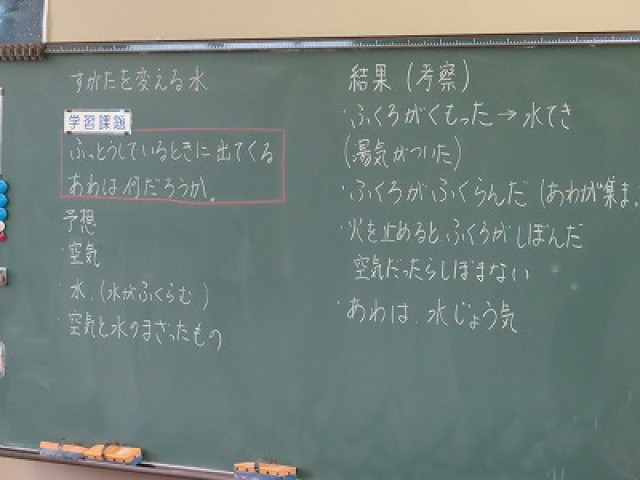 すがたを変える水
学習課題
ふっとうしているときに出てくる
あわは何だろうか。
予想
・空気
・水.(水がふくらむ)
・空気と水のまざったもの
結果(考察)
・ふくろがくもった→水てき
(湯気がついた)
・ふくろがふくらんだ(あわが集ま
・火を止めると、ふくろがしぼんだ
空気だったらしぼまない
・あわは、水じょう気